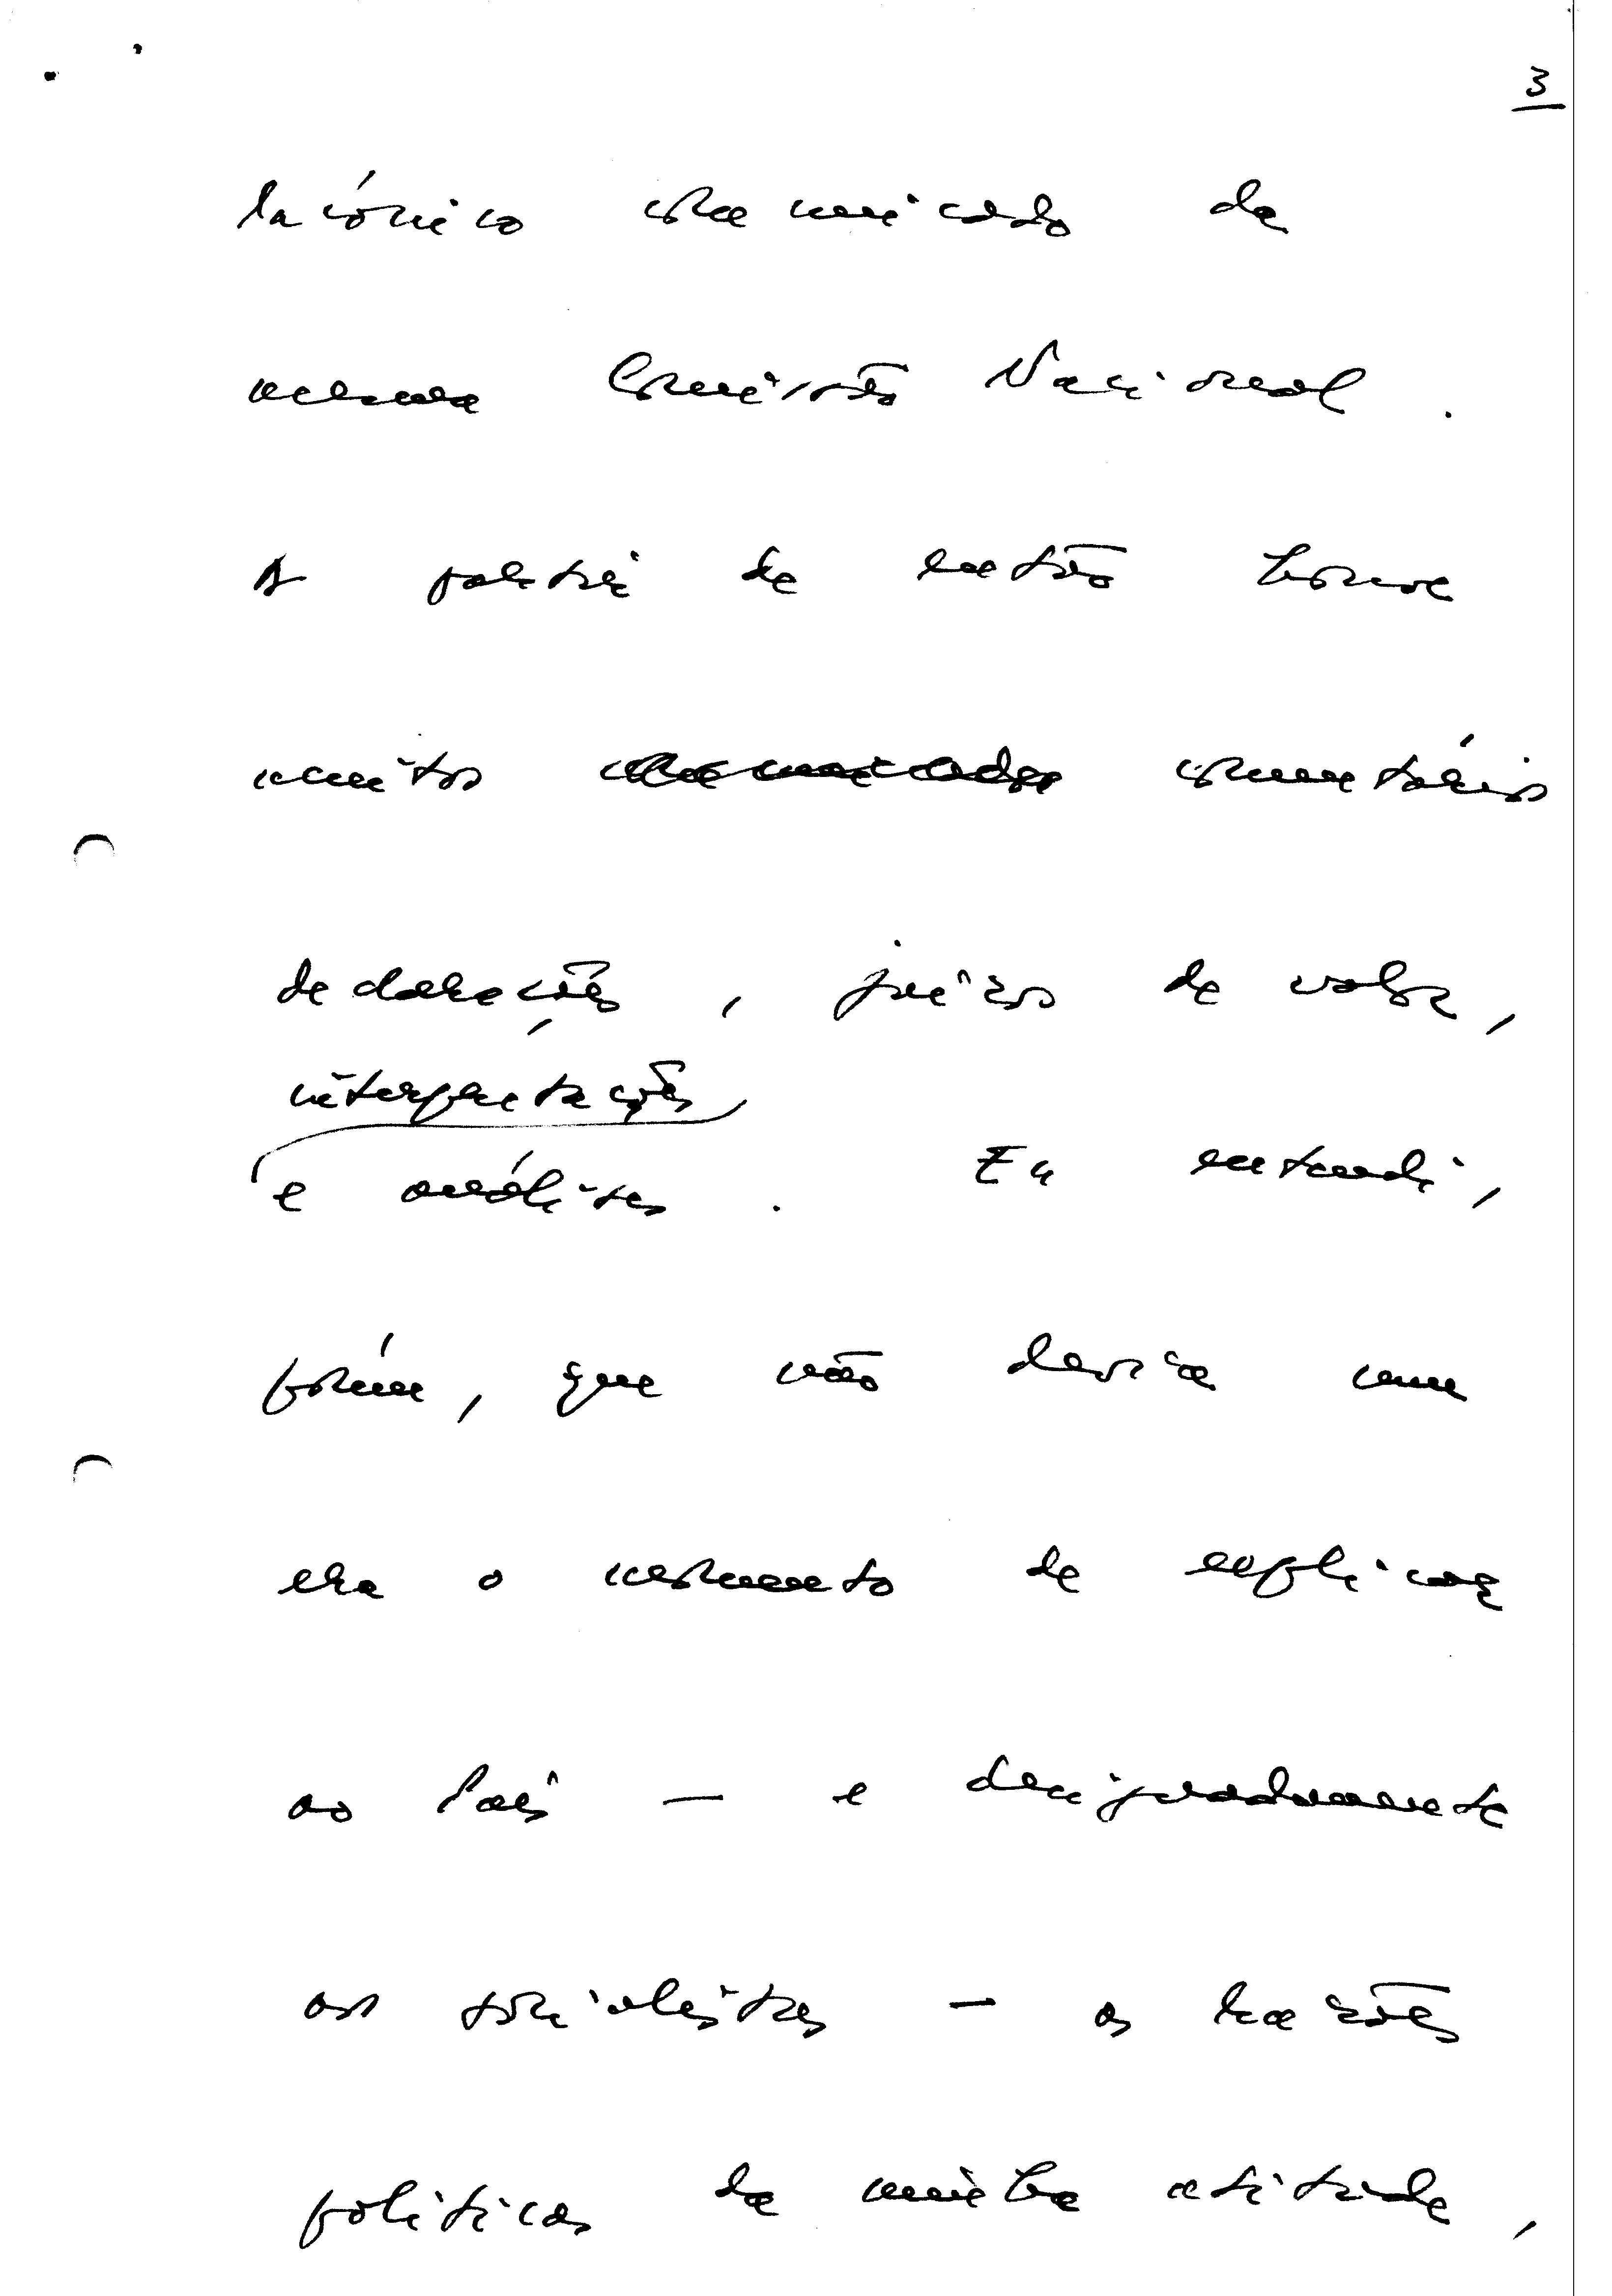 3
lacónico comunicado da
mesma Comissão Nacional.
A partir de então houve
muitos comunicados comentários
declarações, juízos de valor,
interpretações,
e análises. Eu entendi,
porém, que não devia nem
era o momento de explicar
ao País — e designadamente
aos socialistas — as razões
políticas da minha atitude,